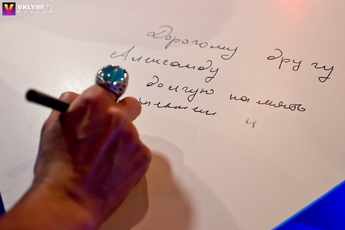 VKLYBE.TV
Дорогому другу
Александу
долгую память
и